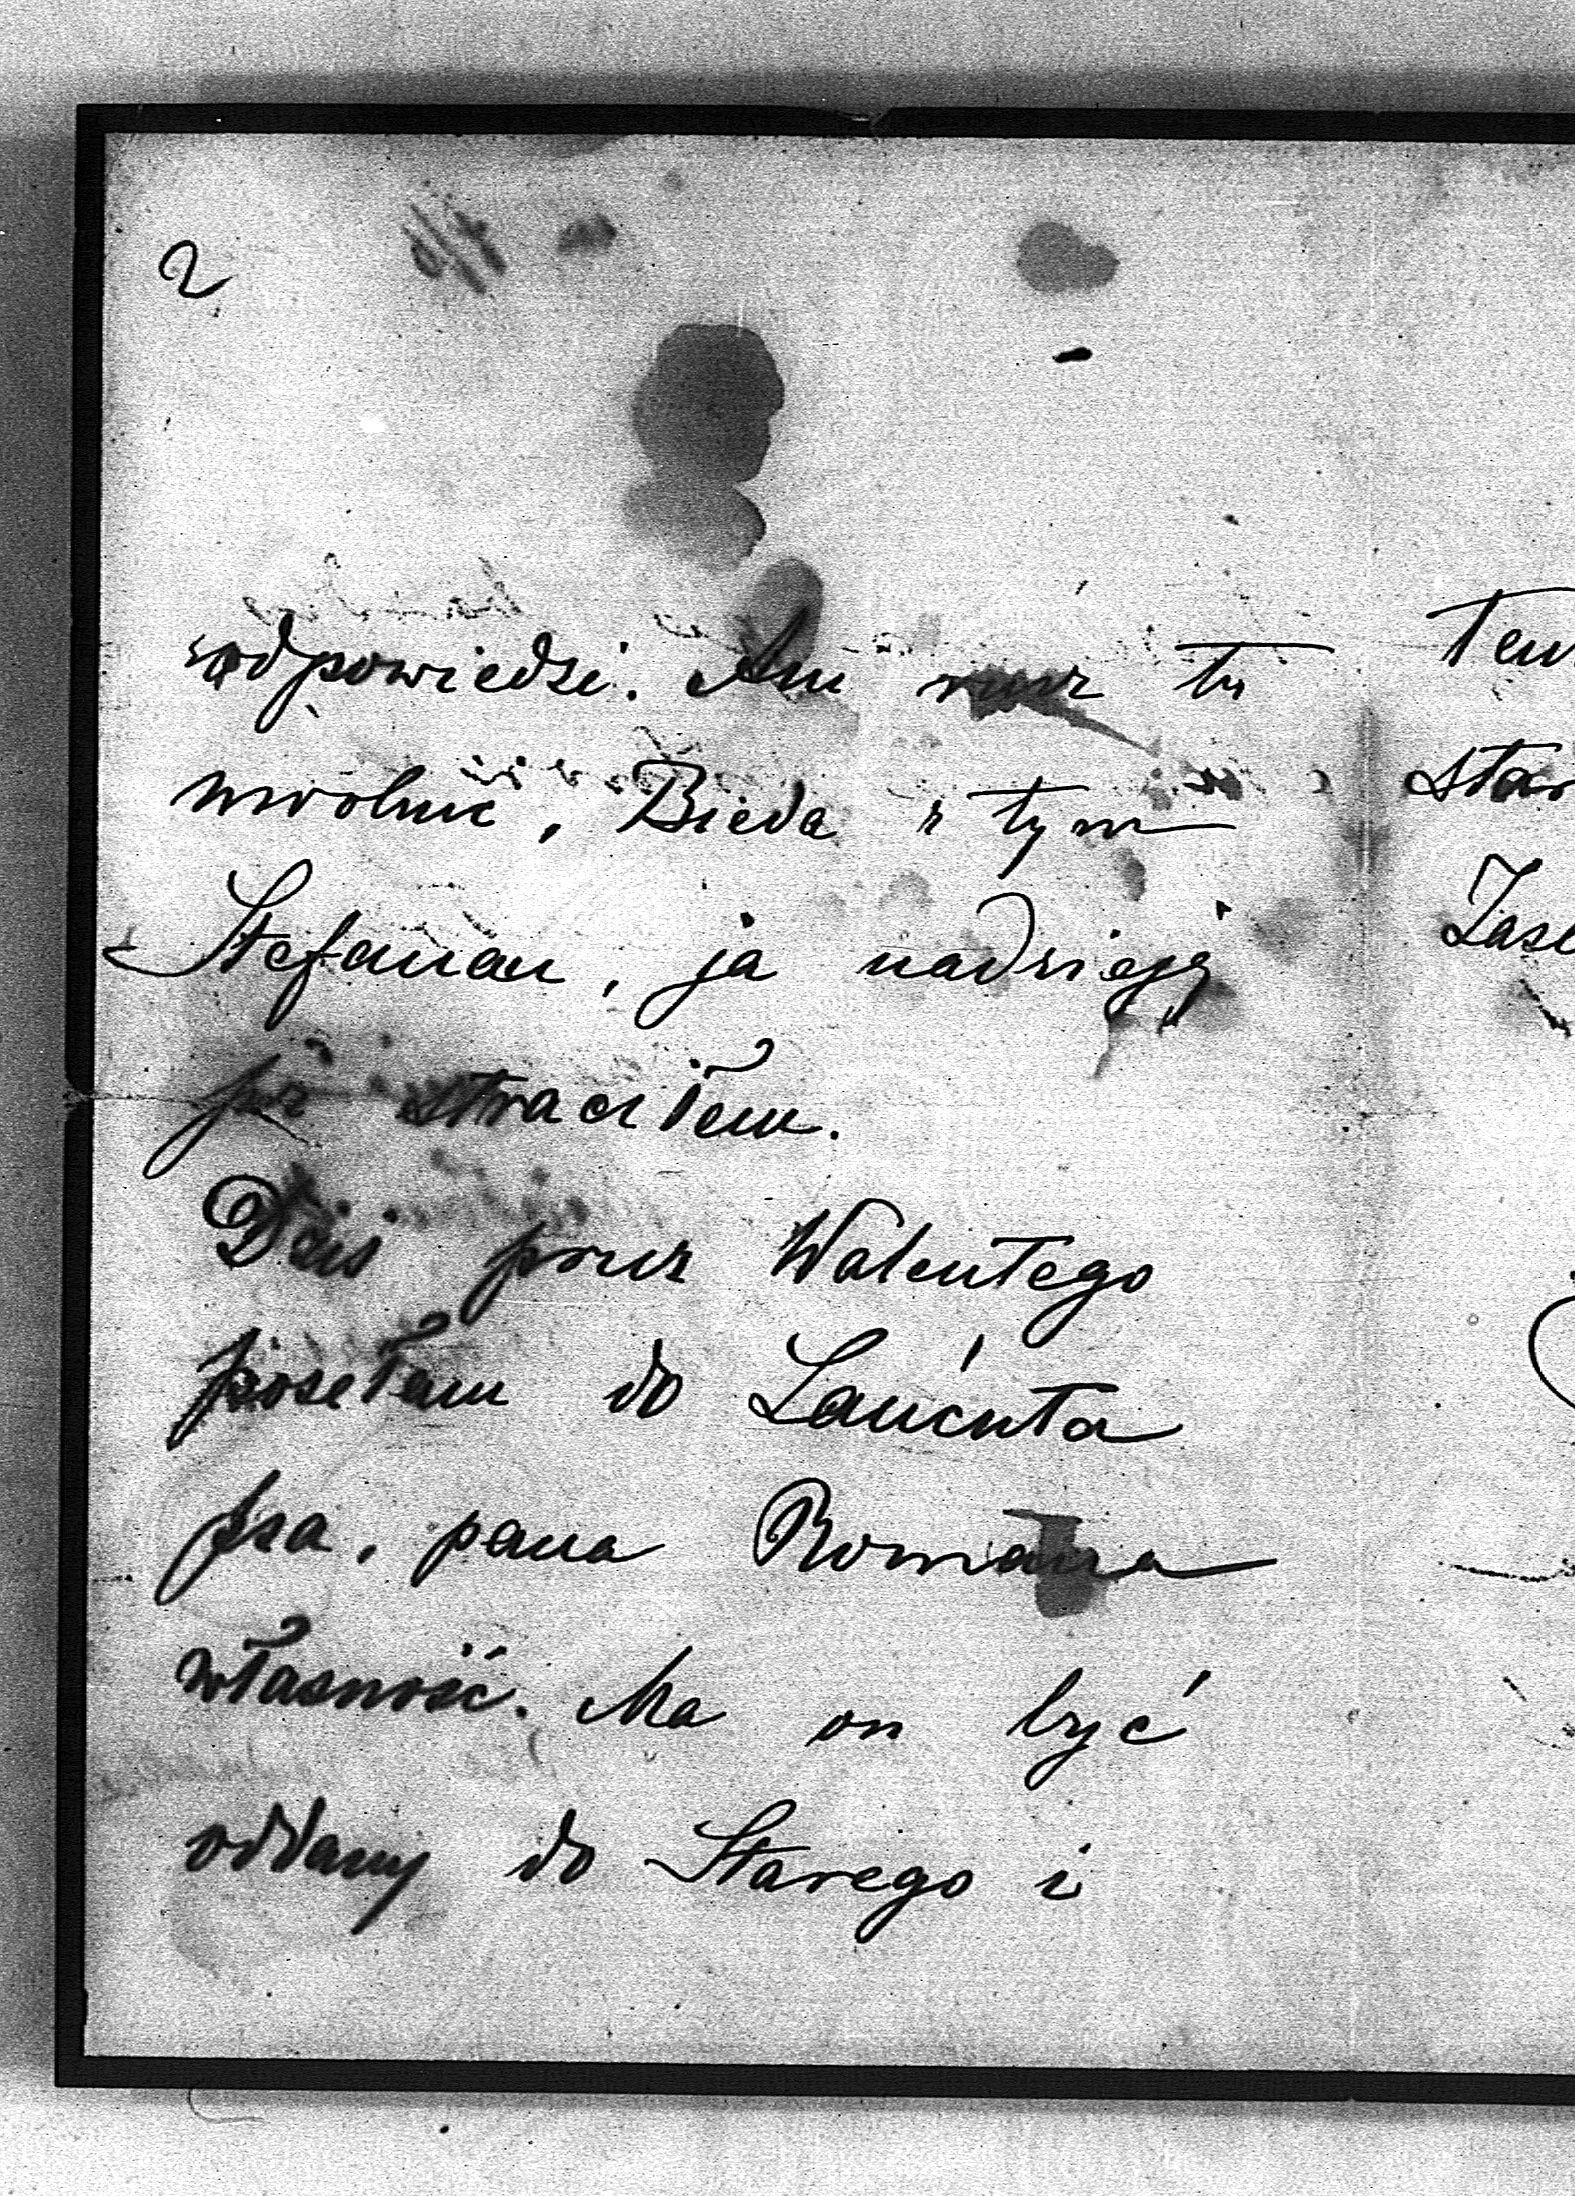 2
odpowiedzi. Ani rusz tu
uwolnić, Bieda z tym
Stefanem, ja nadzieję
już straciłem.
Dziś przez Walentego
posełam do Łańcuta
psa, pana Romana
własność. Ma on być
oddany do Starego i